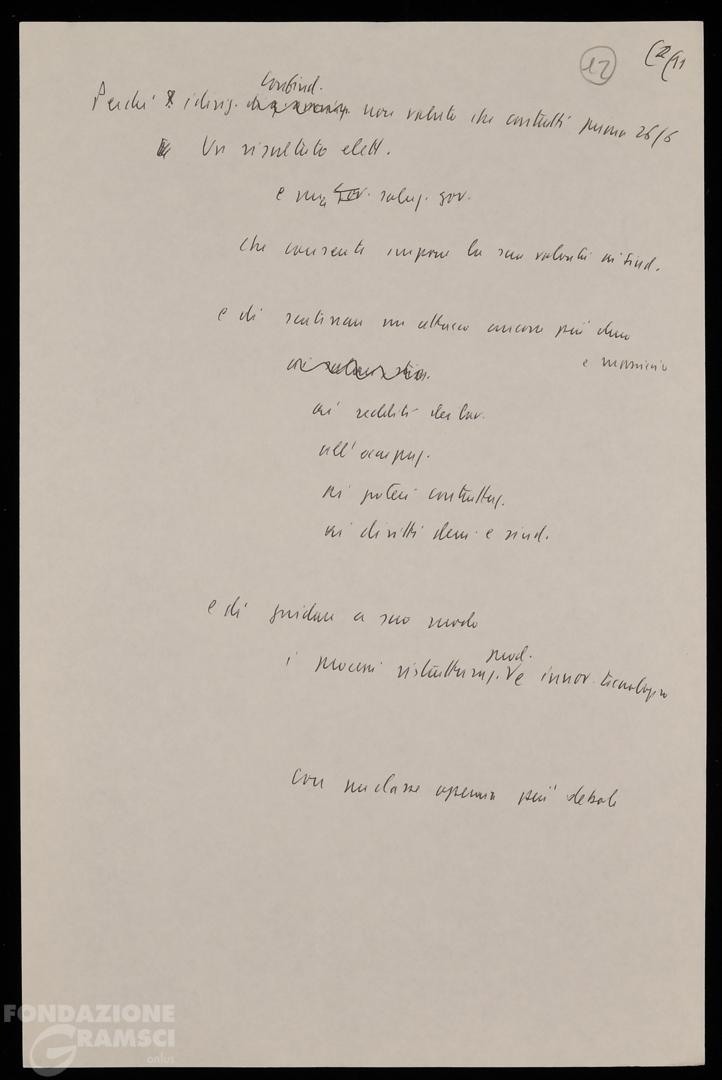 12
Confind.
Perché i dirig. non voluto che contratti prima 26/6
Un risultato elett.
e una soluz. gov.
che consenta imporre la sua volontà ai sind.
e di scatenare un attacco ancora più duro
e massiccio
ai redditi dei lav.
all'occupaz.
ai poteri contrattaz.
ai diritti dem. e sind.
e di guidare a suo modo
prod.
i processi ristrutturaz. e innov. tecnologica
Con una classe operaia più debole
FONDAZIONE
GRAMSCI
onlus